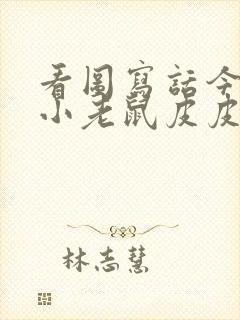 看图寫話今
小老鼠皮皮
林志慧